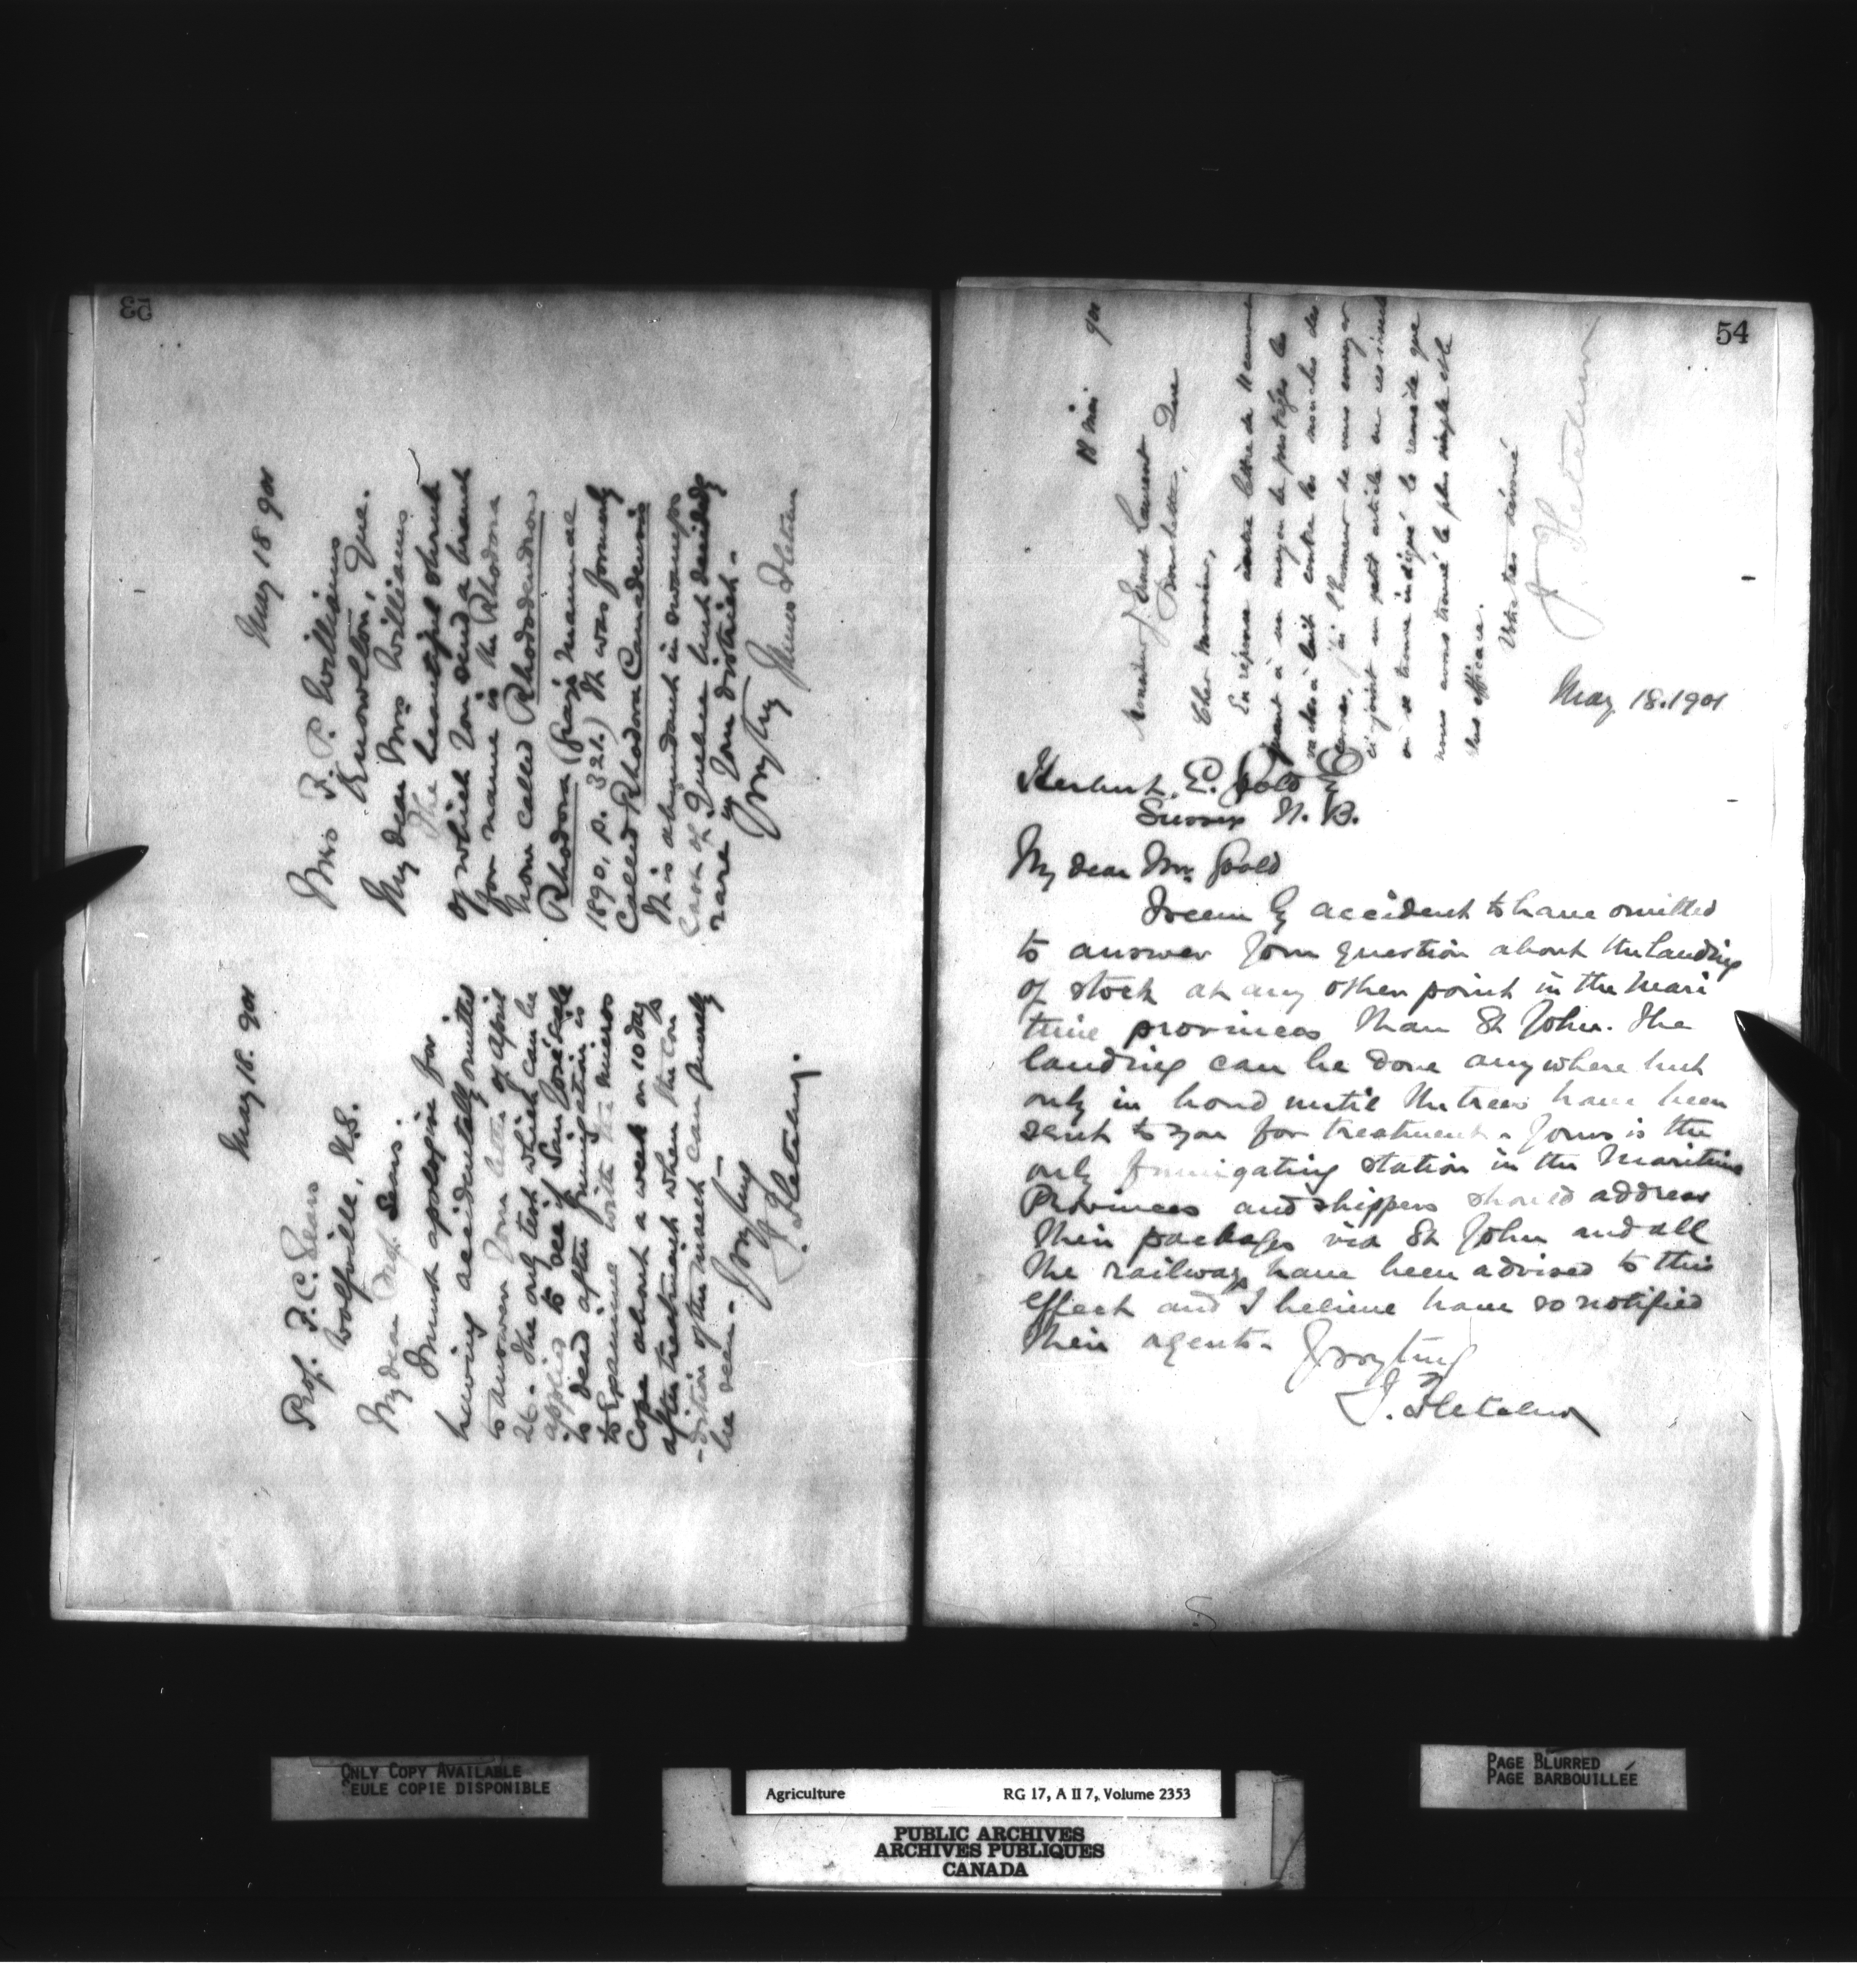 53
May 18. 901
Prof. F. C. Sears
Wolfville, N.S.
My dear Prof. Sears.
I must apologise for
having accidentally omitted
to answer your letter of April
26. The only test which can be
applied to see if San José scale
is dead after fumigation is
to examine with the micros
cope about a week or 10 days
after treatment when the con
-dition of the insect can purely
be seen.
Yrs try
J. Fletcher.
May 18 901
Mrs F. P. Williams
Knowlton, Que.
My dear Mrs Williams
The beautiful shrub
of which you send a branch
for name is the Rhodora
now called Rhododendron
Rhodora (Gray's manual
1890, p. 321.) It was formerly
called Rhodora Canadensis
It is abundant in swamps
East of Quebec but decidedly
rare in your district.
Yrs try
James Fletcher
54
18 mai 901
Monsieur J. Ernest Laurent
Que
Cher Monsieur,
En réponse à votre lettre du 11 courant
quant à un moyen de protéger les
vaches à lait contre les mouches des
cornes, j'ai l'honneur de vous envoyer
ci-joint un petit article sur ces insectes
où se trouve indiqué le remède que
nous avons trouvé le plus simple et le
plus efficace.
Votre très dévoué
J. Fletcher
May 18. 1901
Herbert. E. Goold E
Sussex N. B.
My dear Mr. Goold
I seem by accident to have omitted
to answer your question about the landing
of stock at any other point in the Mari
time provinces than St John. The
landing can be done anywhere but
only in bond until the trees have been
sent to you for treatment. Yours is the
only fumigating station in the Maritime
Provinces and shippers should address
their packages via St John and all
the railways have been advised to this
effect and I believe have so notified
their agents.
Yrs very truly
J. Fletcher
ONLY COPY AVAILABLE
SEULE COPIE DISPONIBLE
Agriculture RG 17, A II 7, Volume 2353
PUBLIC ARCHIVES
ARCHIVES PUBLIQUES
CANADA
PAGE BLURRED
PAGE BARBOUILLÉE